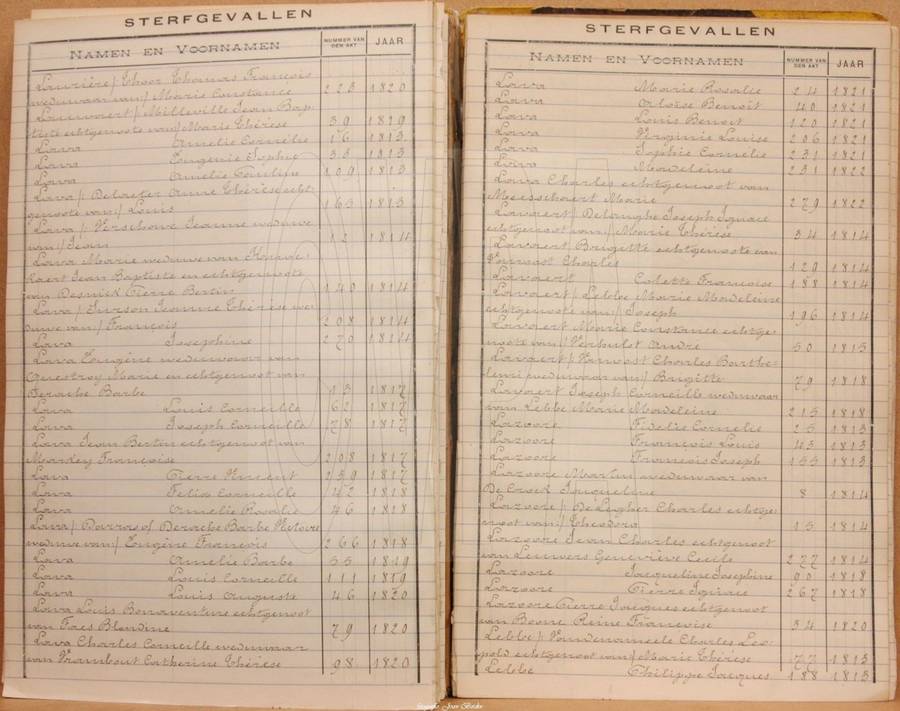 STERFGEVALLEN
NAMEN EN VOORNAMEN NUMMER VAN DEN AKT JAAR
Laurière / Choor Thomas François
weduwaar van / Marie Constance 223 1820
Lauwaert / Milleville Jean Bap-
tiste echtgenoot van / Marie Thérèse 39 1819
Lava Amelie Cornélie 16 1813
Lava Eugenie Sophie 33 1813
Lava Amelie Coraline 109 1813
Lava / Delaeter Anne Thérèse echt-
genoote van / Louis 163 1813
Lava / Verschave Jeanne weduwe
van / Jean 12 1814
Lava Marie weduwe van
Jean Baptiste en echtgenoote
van Desnick Pierre Bertin 140 1814
Lava / Jeanne Thérèse we-
duwe van / François 208 1814
Lava Josephine 270 1814
Lava Eugène weduwaar van
Questroy Marie en echtgenoot van
Derache Barbe 13 1817
Lava Louis Corneille 62 1817
Lava Joseph Corneille 78 1817
Lava Jean Bertin echtgenoot van
Markey Françoise 208 1817
Lava Pierre Vincent 239 1817
Lava Felix Corneille 42 1818
Lava Amelie Rosalie 46 1818
Lava / Darras of Derache Barbe Victoire
weduwe van / Eugène François 266 1818
Lava Amelie Barbe 55 1819
Lava Louis Corneille 111 1819
Lava Louis Auguste 46 1820
Lava Louis Bonaventure echtgenoot
van Faes Blandine 79 1820
Lava Charles Corneille weduwaar
van Vrambout Catherine Thérèse 98 1820
STERFGEVALLEN
NAMEN EN VOORNAMEN NUMMER VAN DEN AKT JAAR
Lava Marie Rosalie 24 1821
Lava Aloïse Benoit 40 1821
Lava Louis Benoit 120 1821
Lava Virginie Louise 206 1821
Lava Sophie Cornelie 231 1821
Lava Madeleine 251 1822
Lava Charles echtgenoot van
Meesschaert Marie 279 1822
Lavaert / Delanghe Joseph Ignace
echtgenoot van / Marie Thérèse 34 1814
Lavaert Brigitte echtgenoote van
Vanoost Charles 129 1814
Lavaert Colette Françoise 188 1814
Lavaert / Lebbe Marie Madeleine
echtgenoote van / Joseph 196 1814
Lavaert Marie Constance echtge-
noote van / Verhulst André 50 1815
Lavaert / Vanoost Charles Barthe-
lemi weduwaar van / Brigitte 79 1818
Lavaert Joseph Corneille weduwaar
van Lebbe Marie Madeleine 215 1818
Lazoore Fidelie Cornelie 25 1813
Lazoore François Louis 43 1813
Lazoore François Joseph 155 1813
Lazoore Martin weduwaar van
De Croock Jacqueline 8 1814
Lazoore / De Legher Charles echtge-
noot van / Theodora 15 1814
Lazoore Jean Charles echtgenoot
van Leuwers Geneviève Cecile 277 1814
Lazoore Jacqueline Josephine 90 1818
Lazoore Pierre Ignace 267 1818
Lazoore Pierre Jacques echtgenoot
van Boone Reine Françoise 34 1820
Lebbe / Vandenameele Charles Leo-
pold echtgenoot van / Marie Thérèse 77 1813
Lebbe Philippe Jacques 188 1813